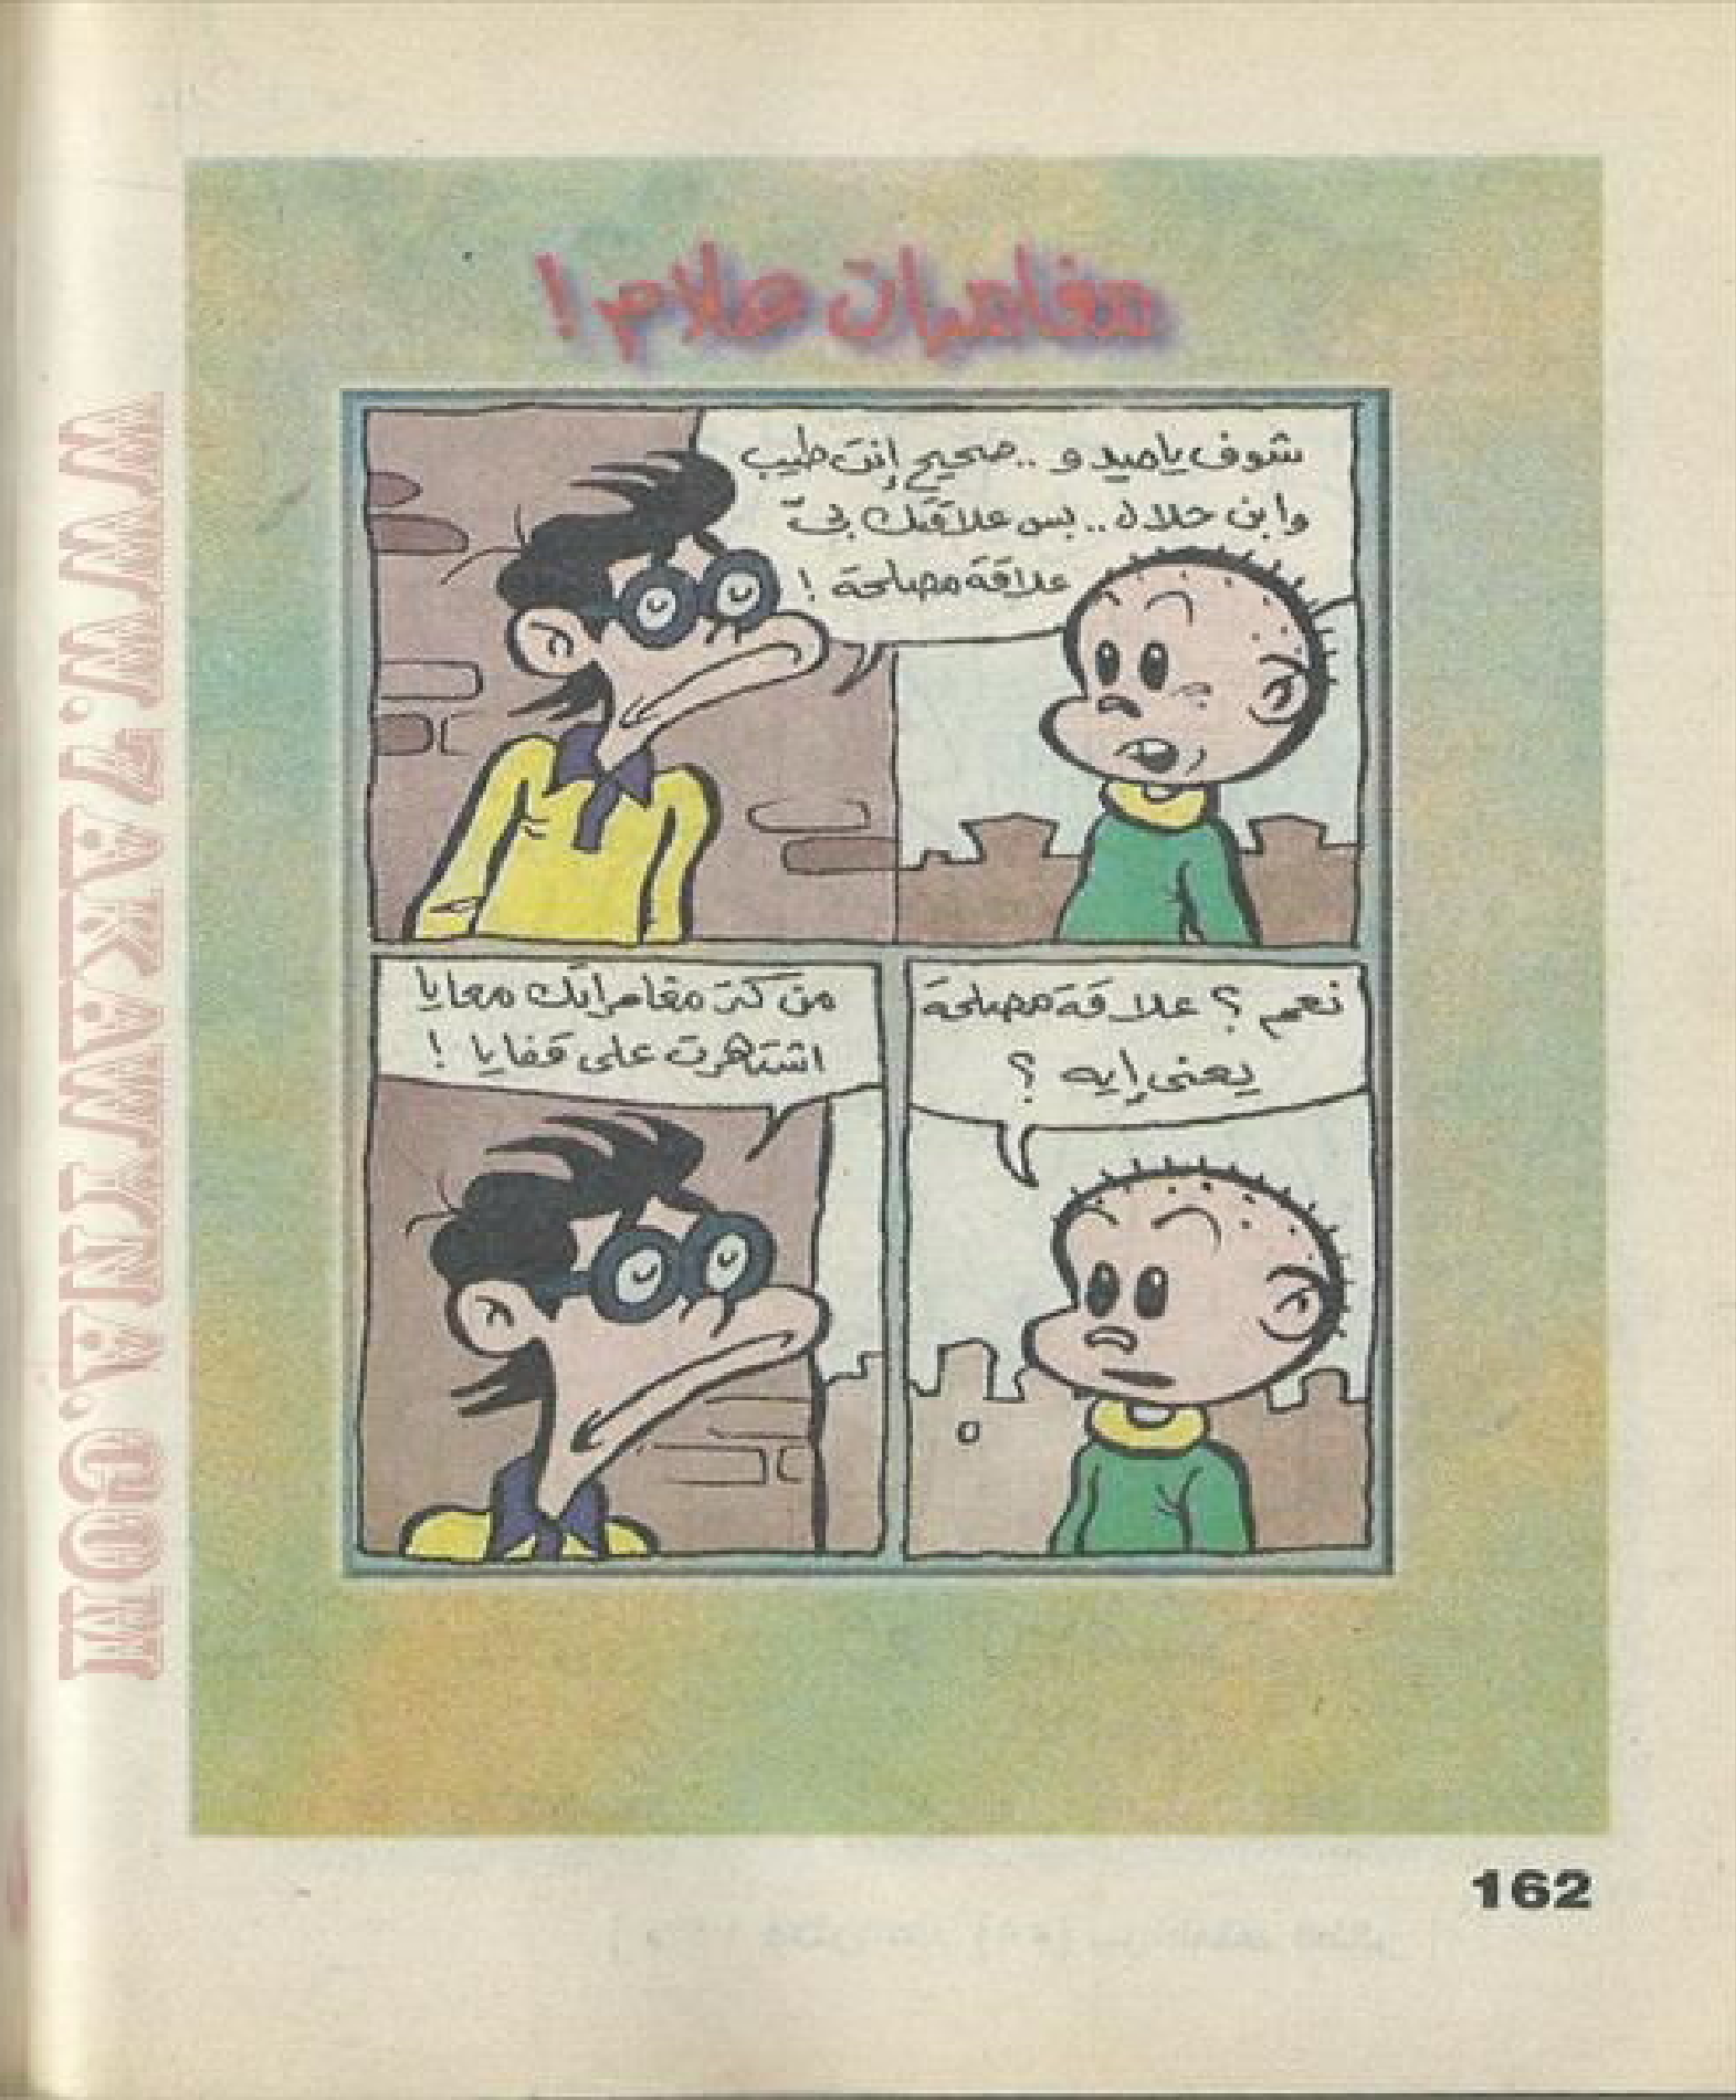 مغامرات علام!
شوف يا ميدو .. صحيح إنت طيب
وابن حلال .. بس علاقتك بىّ
علاقة مصلحة !
نعم ؟ علاقة مصلحة
يعنى إيه ؟
من كتر مغامراتك معايا
اشتهرت على قفايا !
162